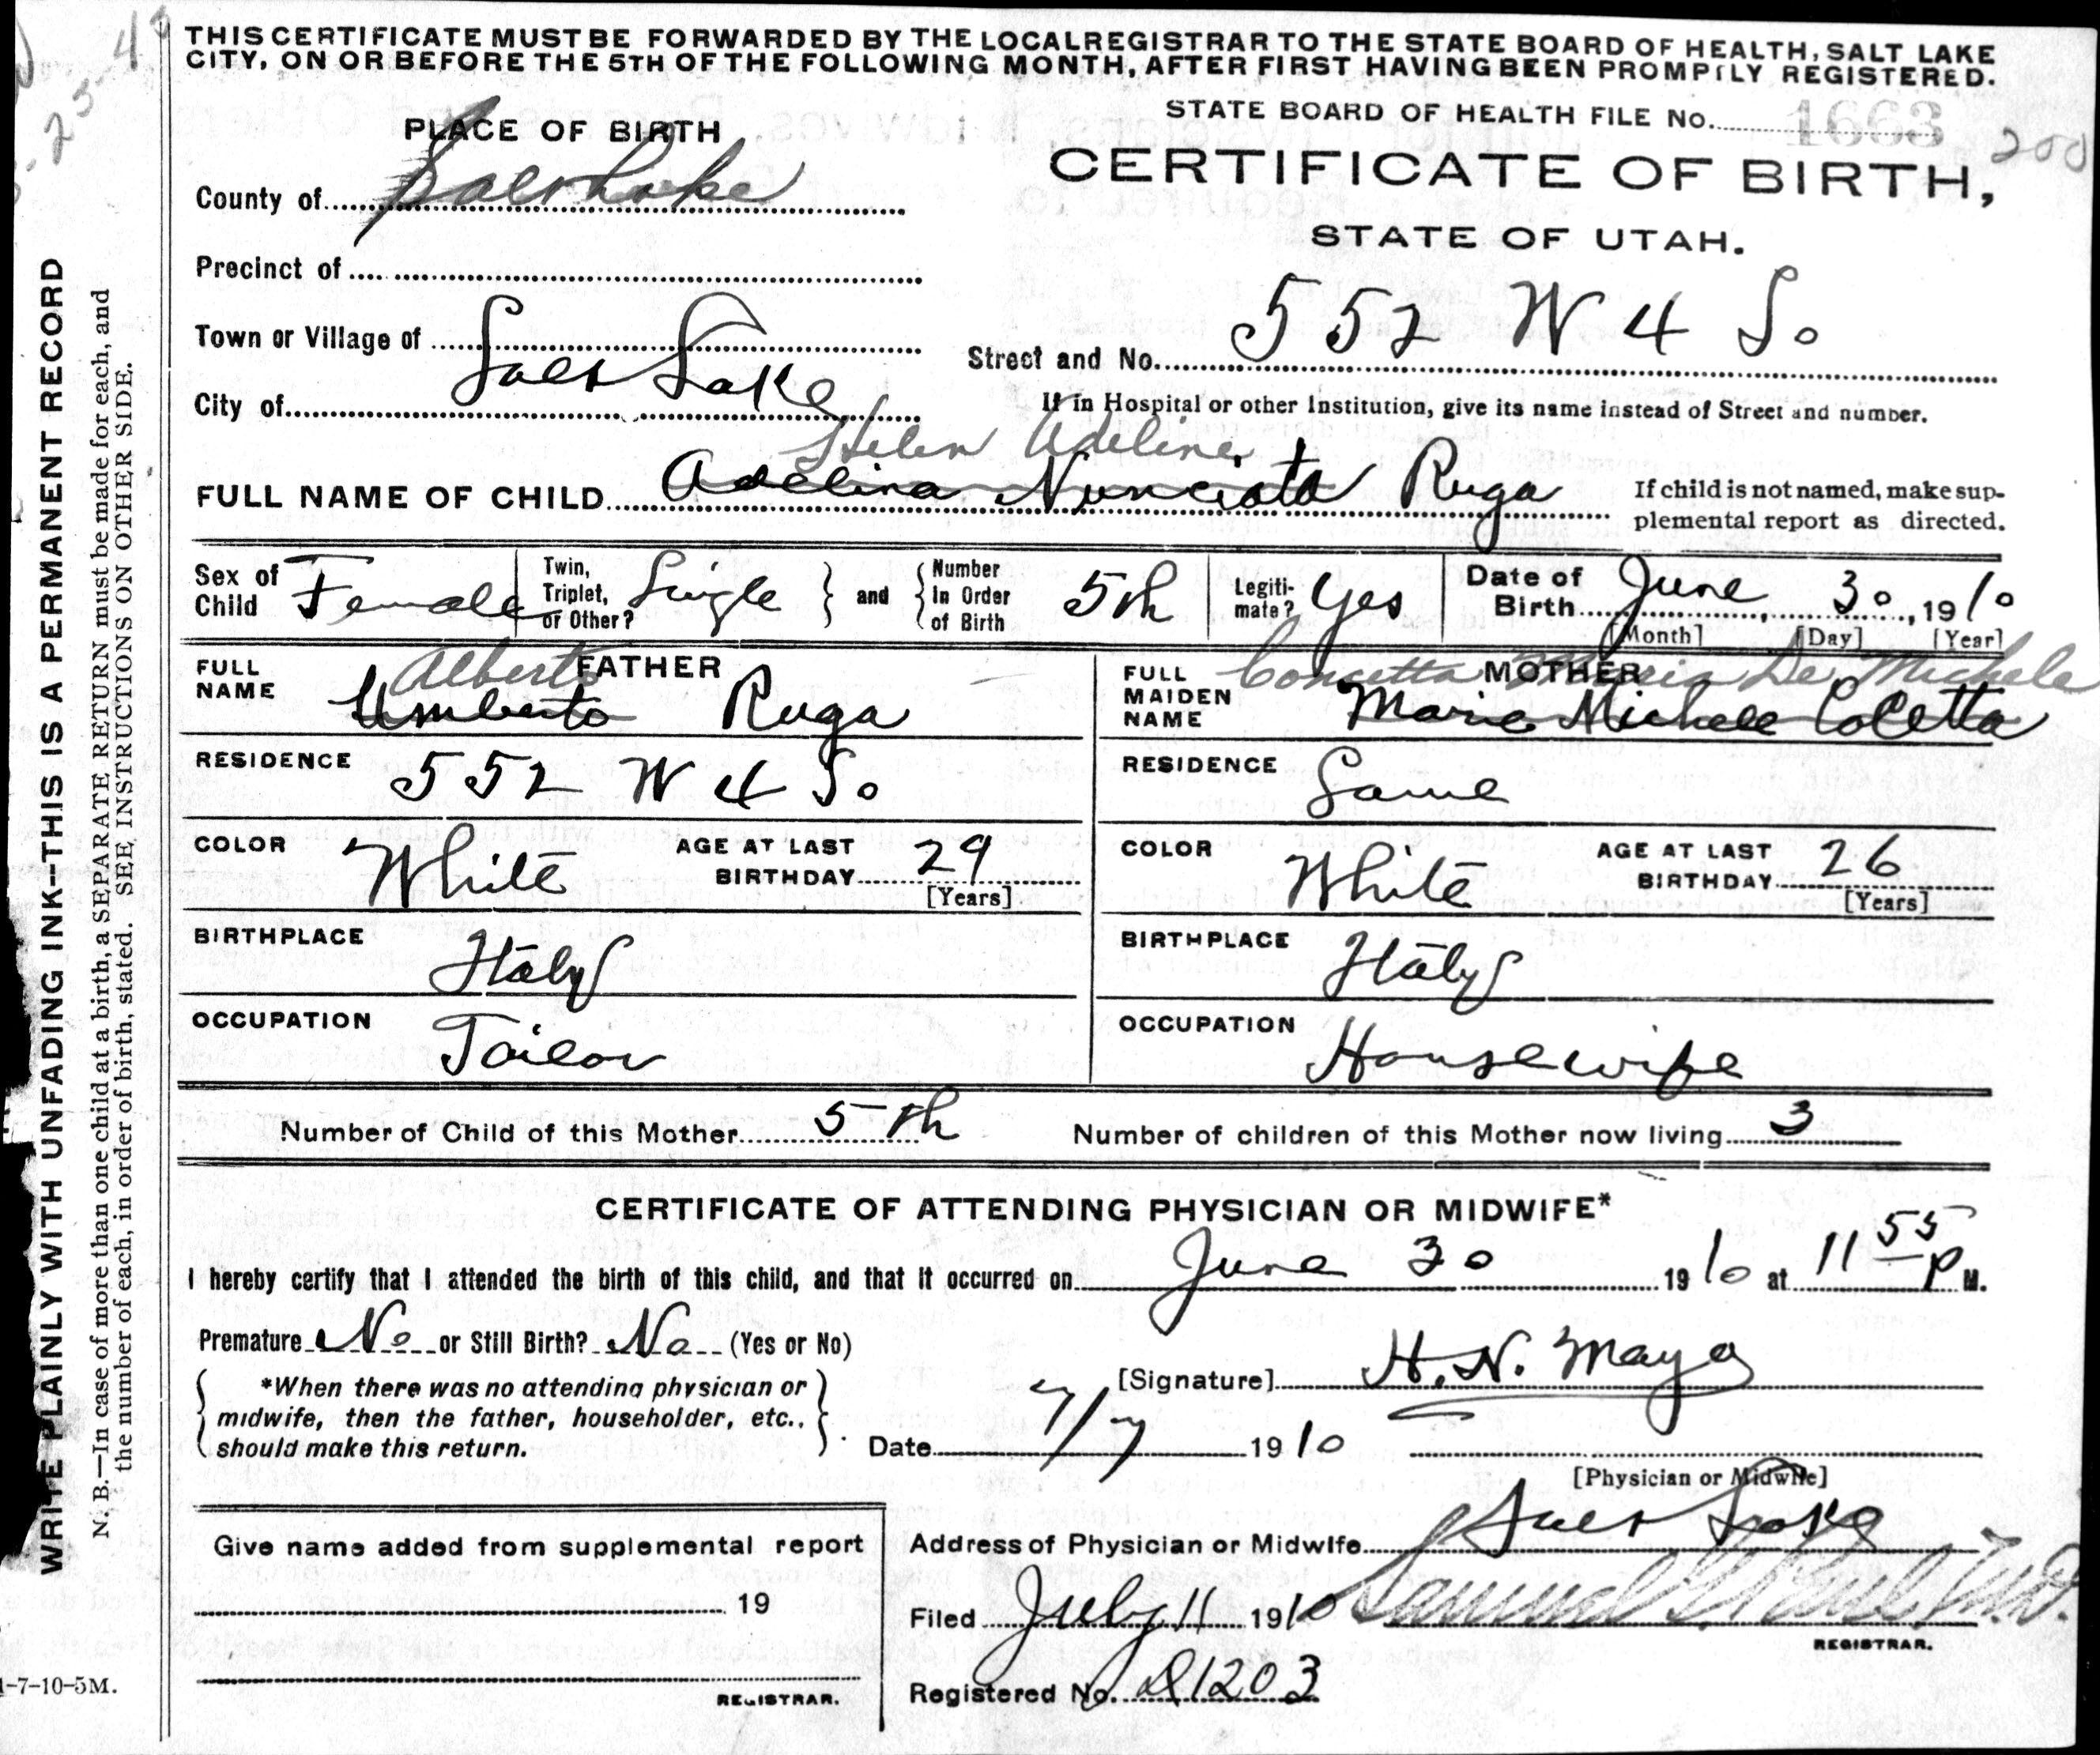 THIS CERTIFICATE MUST BE FORWARDED BY THE LOCAL REGISTRAR TO THE STATE BOARD OF HEALTH, SALT LAKE
CITY, ON OR BEFORE THE 5TH OF THE FOLLOWING MONTH, AFTER FIRST HAVING BEEN PROMPTLY REGISTERED.
STATE BOARD OF HEALTH FILE No. 1663
200
PLACE OF BIRTH
CERTIFICATE OF BIRTH,
STATE OF UTAH.
County of Salt Lake
Precinct of
Town or Village of
City of Salt Lake
Street and No. 552 W 4 So
If in Hospital or other Institution, give its name instead of Street and number.
Helen Adeline
FULL NAME OF CHILD Adelina Nunciata Ruga
If child is not named, make sup-
plemental report as directed.
Sex of Child Female
Twin, Triplet, or Other? Single
and
Number In Order of Birth 5th
Legiti-mate? Yes
Date of Birth June 30, 1910
[Month] [Day] [Year]
FATHER
FULL NAME Alberto
Umberto Ruga
RESIDENCE 552 W 4 So
COLOR White AGE AT LAST BIRTHDAY 29
[Years]
BIRTHPLACE Italy
OCCUPATION Tailor
MOTHER
FULL MAIDEN NAME Concetta Maria De Michele
Marie Michele Coletta
RESIDENCE Same
COLOR White AGE AT LAST BIRTHDAY 26
[Years]
BIRTHPLACE Italy
OCCUPATION Housewife
Number of Child of this Mother 5th Number of children of this Mother now living 3
CERTIFICATE OF ATTENDING PHYSICIAN OR MIDWIFE*
I hereby certify that I attended the birth of this child, and that it occurred on June 30 1910 at 11 55 P M.
Premature No or Still Birth? No (Yes or No)
*When there was no attending physician or
midwife, then the father, householder, etc.,
should make this return.
[Signature] H. N. Mayo
Date 7/7 1910
[Physician or Midwife]
Give name added from supplemental report
19
REGISTRAR.
Address of Physician or Midwife Salt Lake
Filed July 11 1910 Samuel M.D.
REGISTRAR.
Registered No. 1203
WRITE PLAINLY WITH UNFADING INK—THIS IS A PERMANENT RECORD
N. B.—In case of more than one child at a birth, a SEPARATE RETURN must be made for each, and
the number of each, in order of birth, stated. SEE INSTRUCTIONS ON OTHER SIDE.
-7-10-5M.